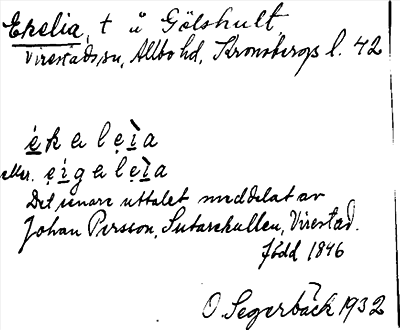 Ekelia, t å Gölshult,
Virestads sn, Allbo hd, Kronobergs l. 42
ékalẹìa
eller. ẹígalẹìa
Det senare uttalet meddelat av
Johan Persson, Sutarekullen, Virestad.
född 1846
O Segerbäck 1932